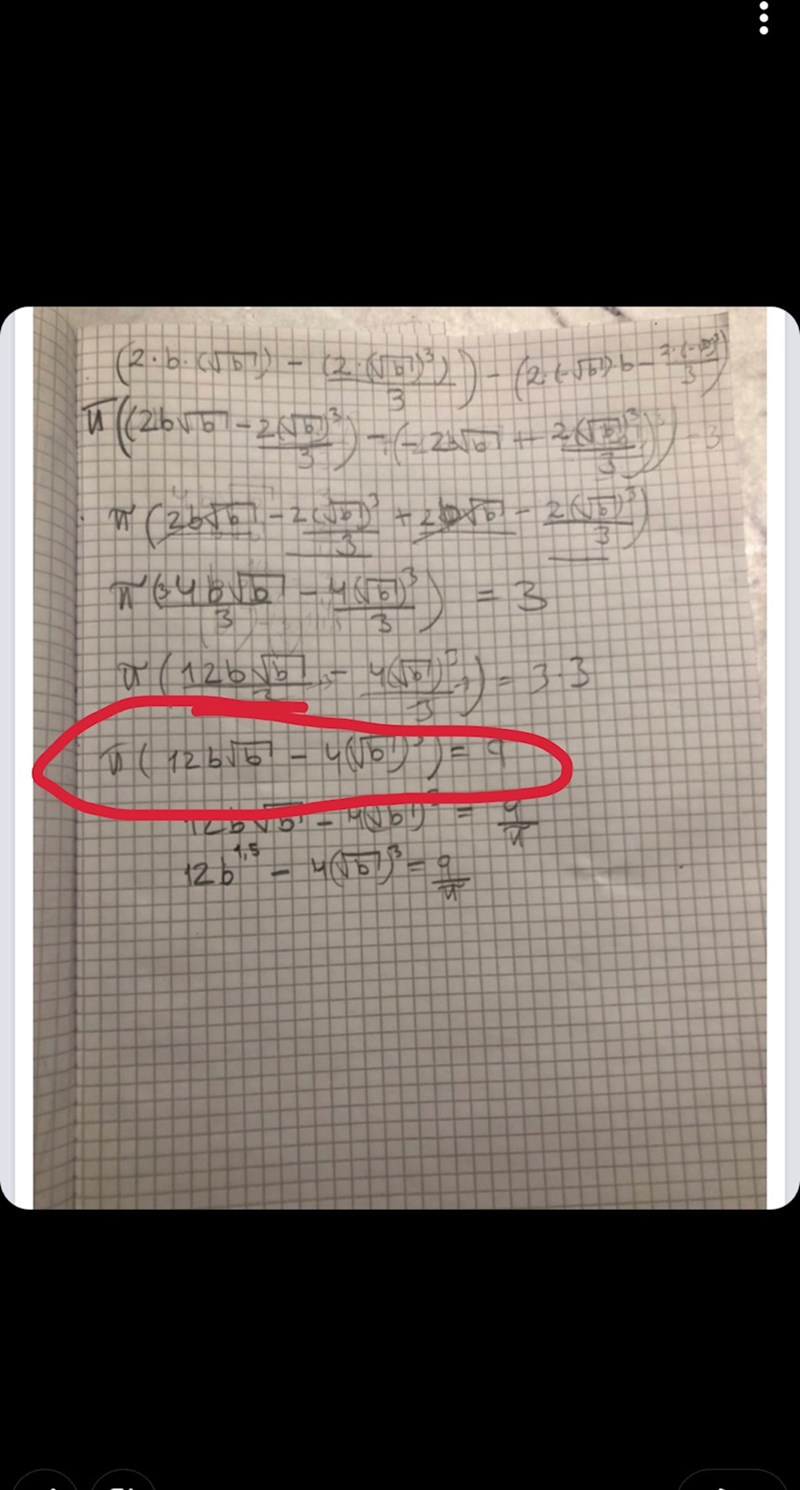 (2·b·(√b) − (2·(√b)³)/3) − (2·(−√b)·b − 2·(−√b)³/3)
π((2b√b − 2(√b)³/3) − (−2b√b + 2(√b)³/3)) = 3
π(2b√b − 2(√b)³/3 + 2b√b − 2(√b)³/3)
π(3·4b√b/3 − 4(√b)³/3) = 3
π(12b√b/3 − 4(√b)³/3) = 3·3
π(12b√b − 4(√b)³) = 9
12b√b − 4(√b)³ = 9/π
12b^1,5 − 4(√b)³ = 9/π